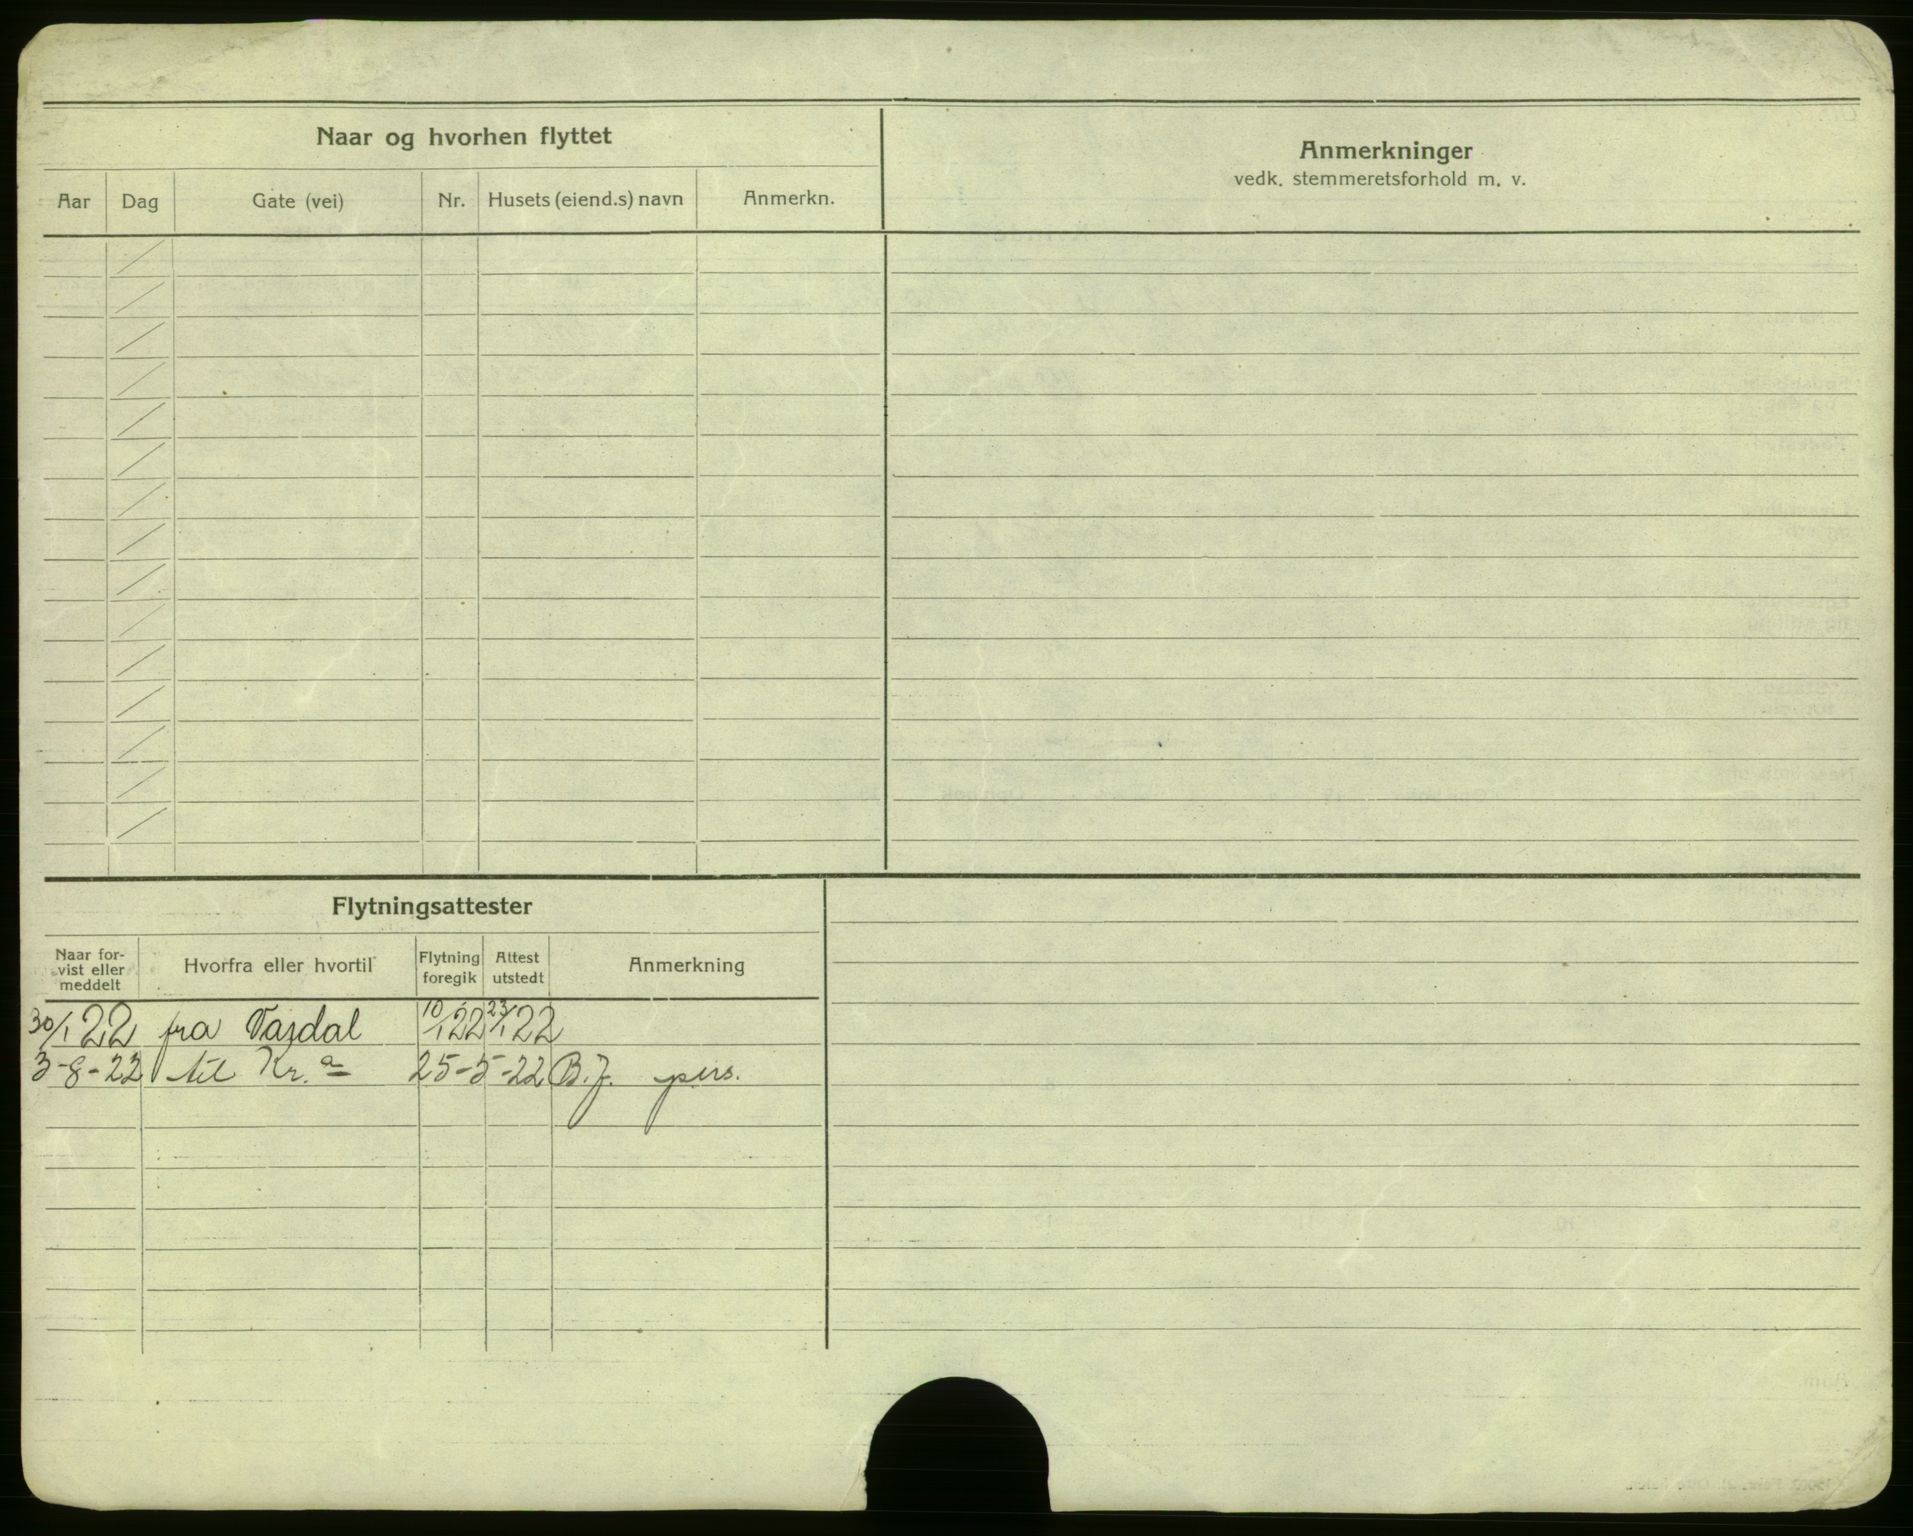 Naar og hvorhen flyttet
Anmerkninger
vedk. stemmeretsforhold m. v.
Aar Dag Gate (vei) Nr. Husets (eiend.s) navn Anmerkn.
Flytningsattester
Naar for-
vist eller
meddelt
Hvorfra eller hvortil
Flytning
foregik
Attest
utstedt
Anmerkning
30/1 22 fra 10/1 22 23/1 22
3-8-22 til Kr.a 25-5-22 B.J. pers.